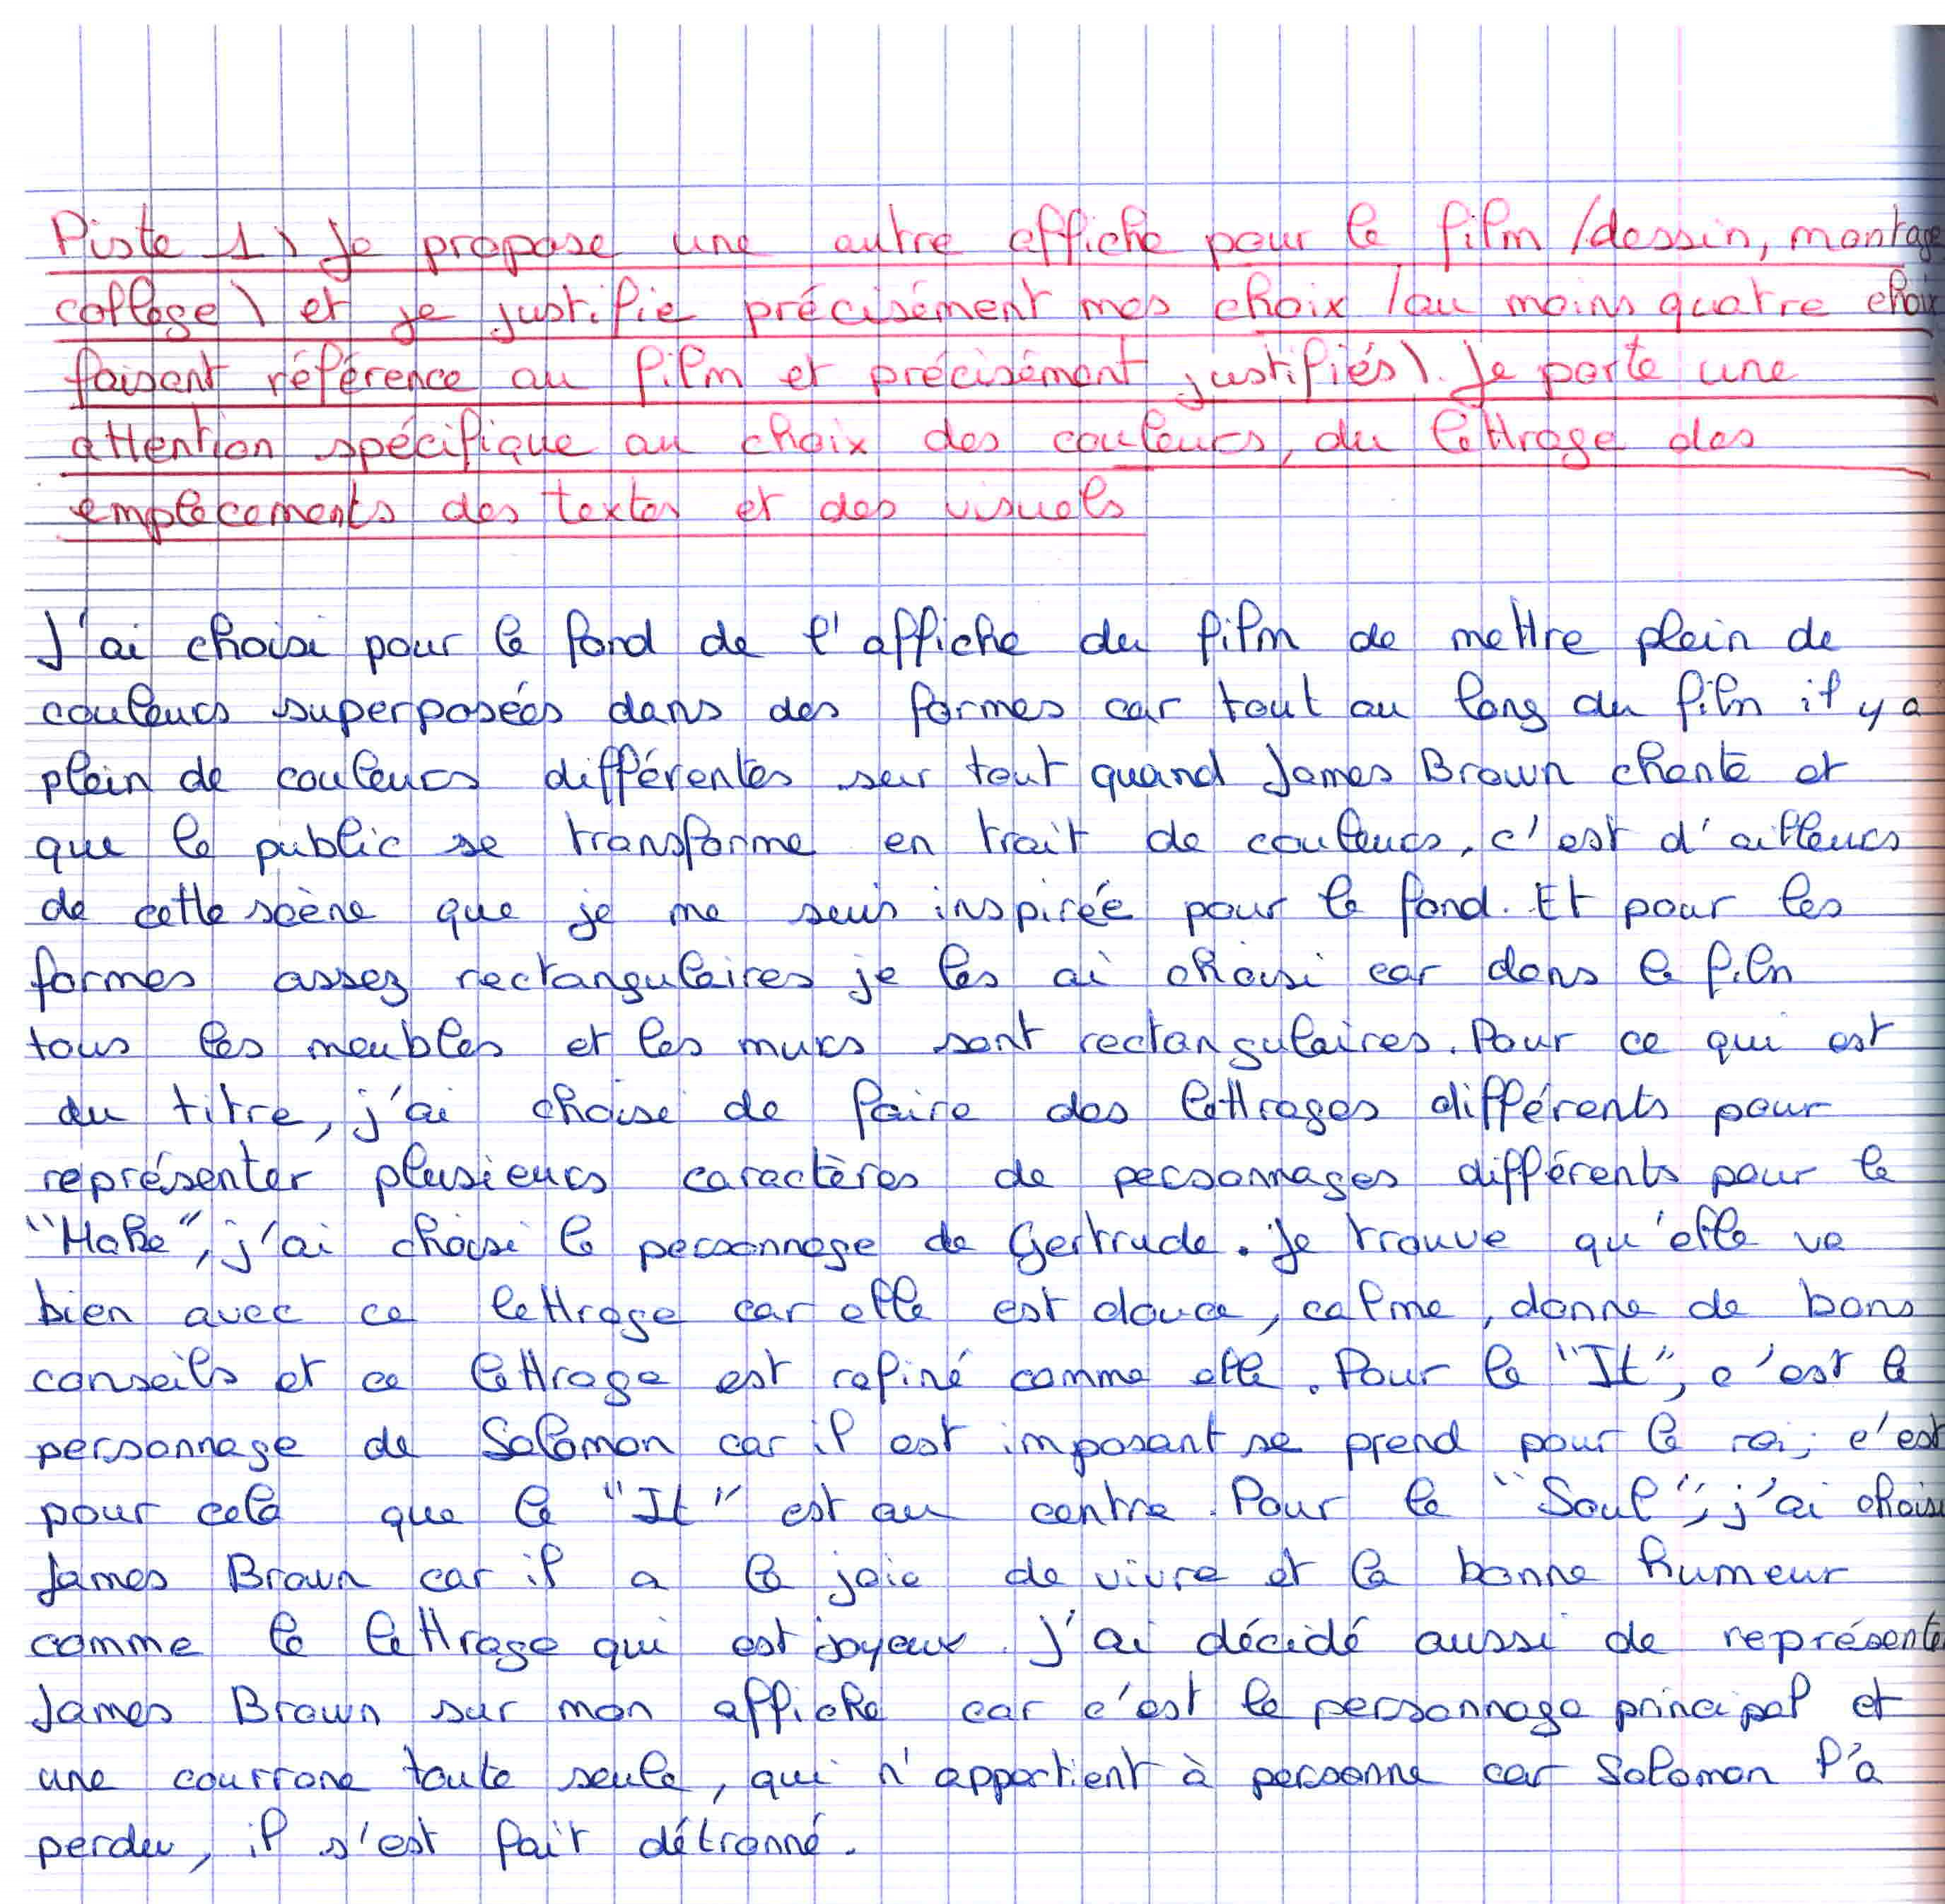 Piste 1) Je propose une autre affiche pour le film (dessin, montage
collage) et je justifie précisément mes choix (au moins quatre choix
faisant référence au film et précisément justifiés). Je porte une
attention spécifique au choix des couleurs, du lettrage des
emplacements des textes et des visuels
J'ai choisi pour le fond de l'affiche du film de mettre plein de
couleurs superposées dans des formes car tout au long du film il y a
plein de couleurs différentes sur tout quand James Brown chante et
que le public se transforme en trait de couleurs, c'est d'ailleurs
de cette scène que je me suis inspirée pour le fond. Et pour les
formes assez rectangulaires je les ai choisi car dans le film
tous les meubles et les murs sont rectangulaires. Pour ce qui est
du titre, j'ai choisi de faire des lettrages différents pour
représenter plusieurs caractères de personnages différents pour le
"Make", j'ai choisi le personnage de Gertrude. Je trouve qu'elle va
bien avec ce lettrage car elle est douce, calme, donne de bons
conseils et ce lettrage est rafiné comme elle. Pour le "It", c'est le
personnage de Solomon car il est imposant se prend pour le roi, c'est
pour cela que le "It" est au centre. Pour le "Soul", j'ai choisi
James Brown car il a la joie de vivre et la bonne humeur
comme le lettrage qui est joyeux. J'ai décidé aussi de représenter
James Brown sur mon affiche car c'est le personnage principal et
une courrone toute seule, qui n'appartient à personne car Solomon l'a
perdu, il s'est fait détronné.